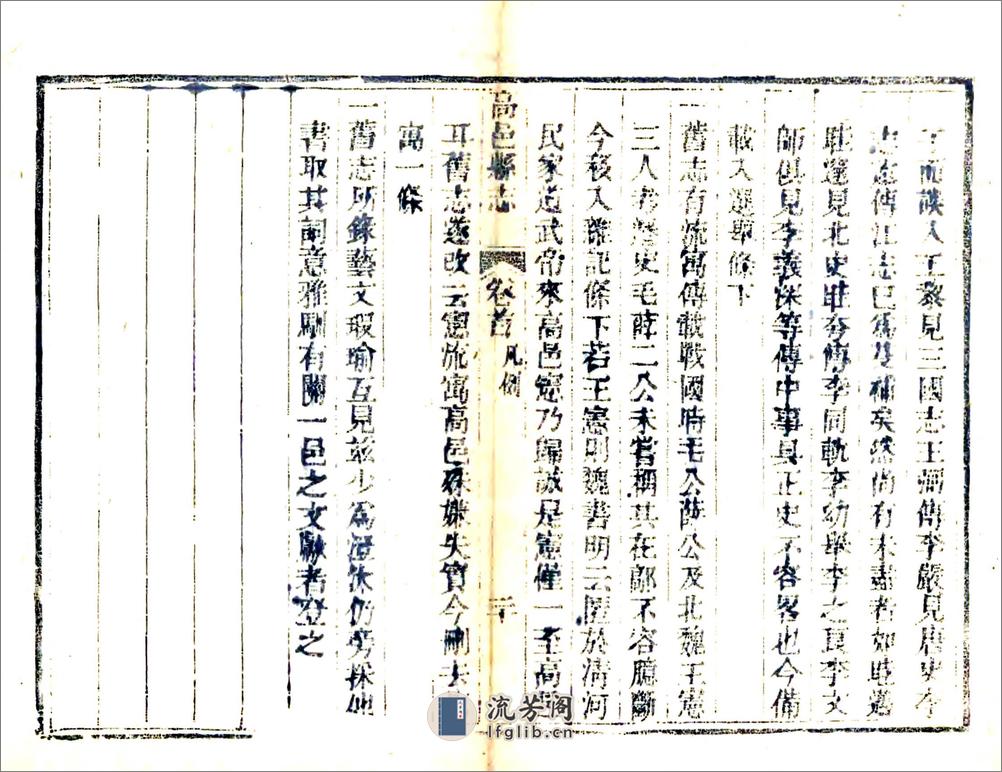 王黎見三國志王弼傳李嚴見唐史今
志傳江志已為補矣然尚有未盡者如眭邁
眭逵見北史眭夸傳李同軌李幼舉李之良李文
師俱見李義深等傳中事具正史不容畧也今備
載入選舉條下
一舊志有流寓傳載戰國時毛公薛公及北魏王憲
三人考證史毛薛二公未嘗稱其在鄗不容臆斷
今移入雜記條下若王憲則魏書明云匿於清河
民家道武帝來高邑憲乃歸誠是憲僅一至高邑
耳舊志遂改云憲旅寓高邑殊嫌失實今刪去
寓一條
一舊志所錄藝文瑕瑜互見茲少為澄汰仍旁採他
書取其詞意雅馴有關一邑之文獻者登之
高邑縣志
卷首
凡例
二十
流芳阁
lfglib.cn